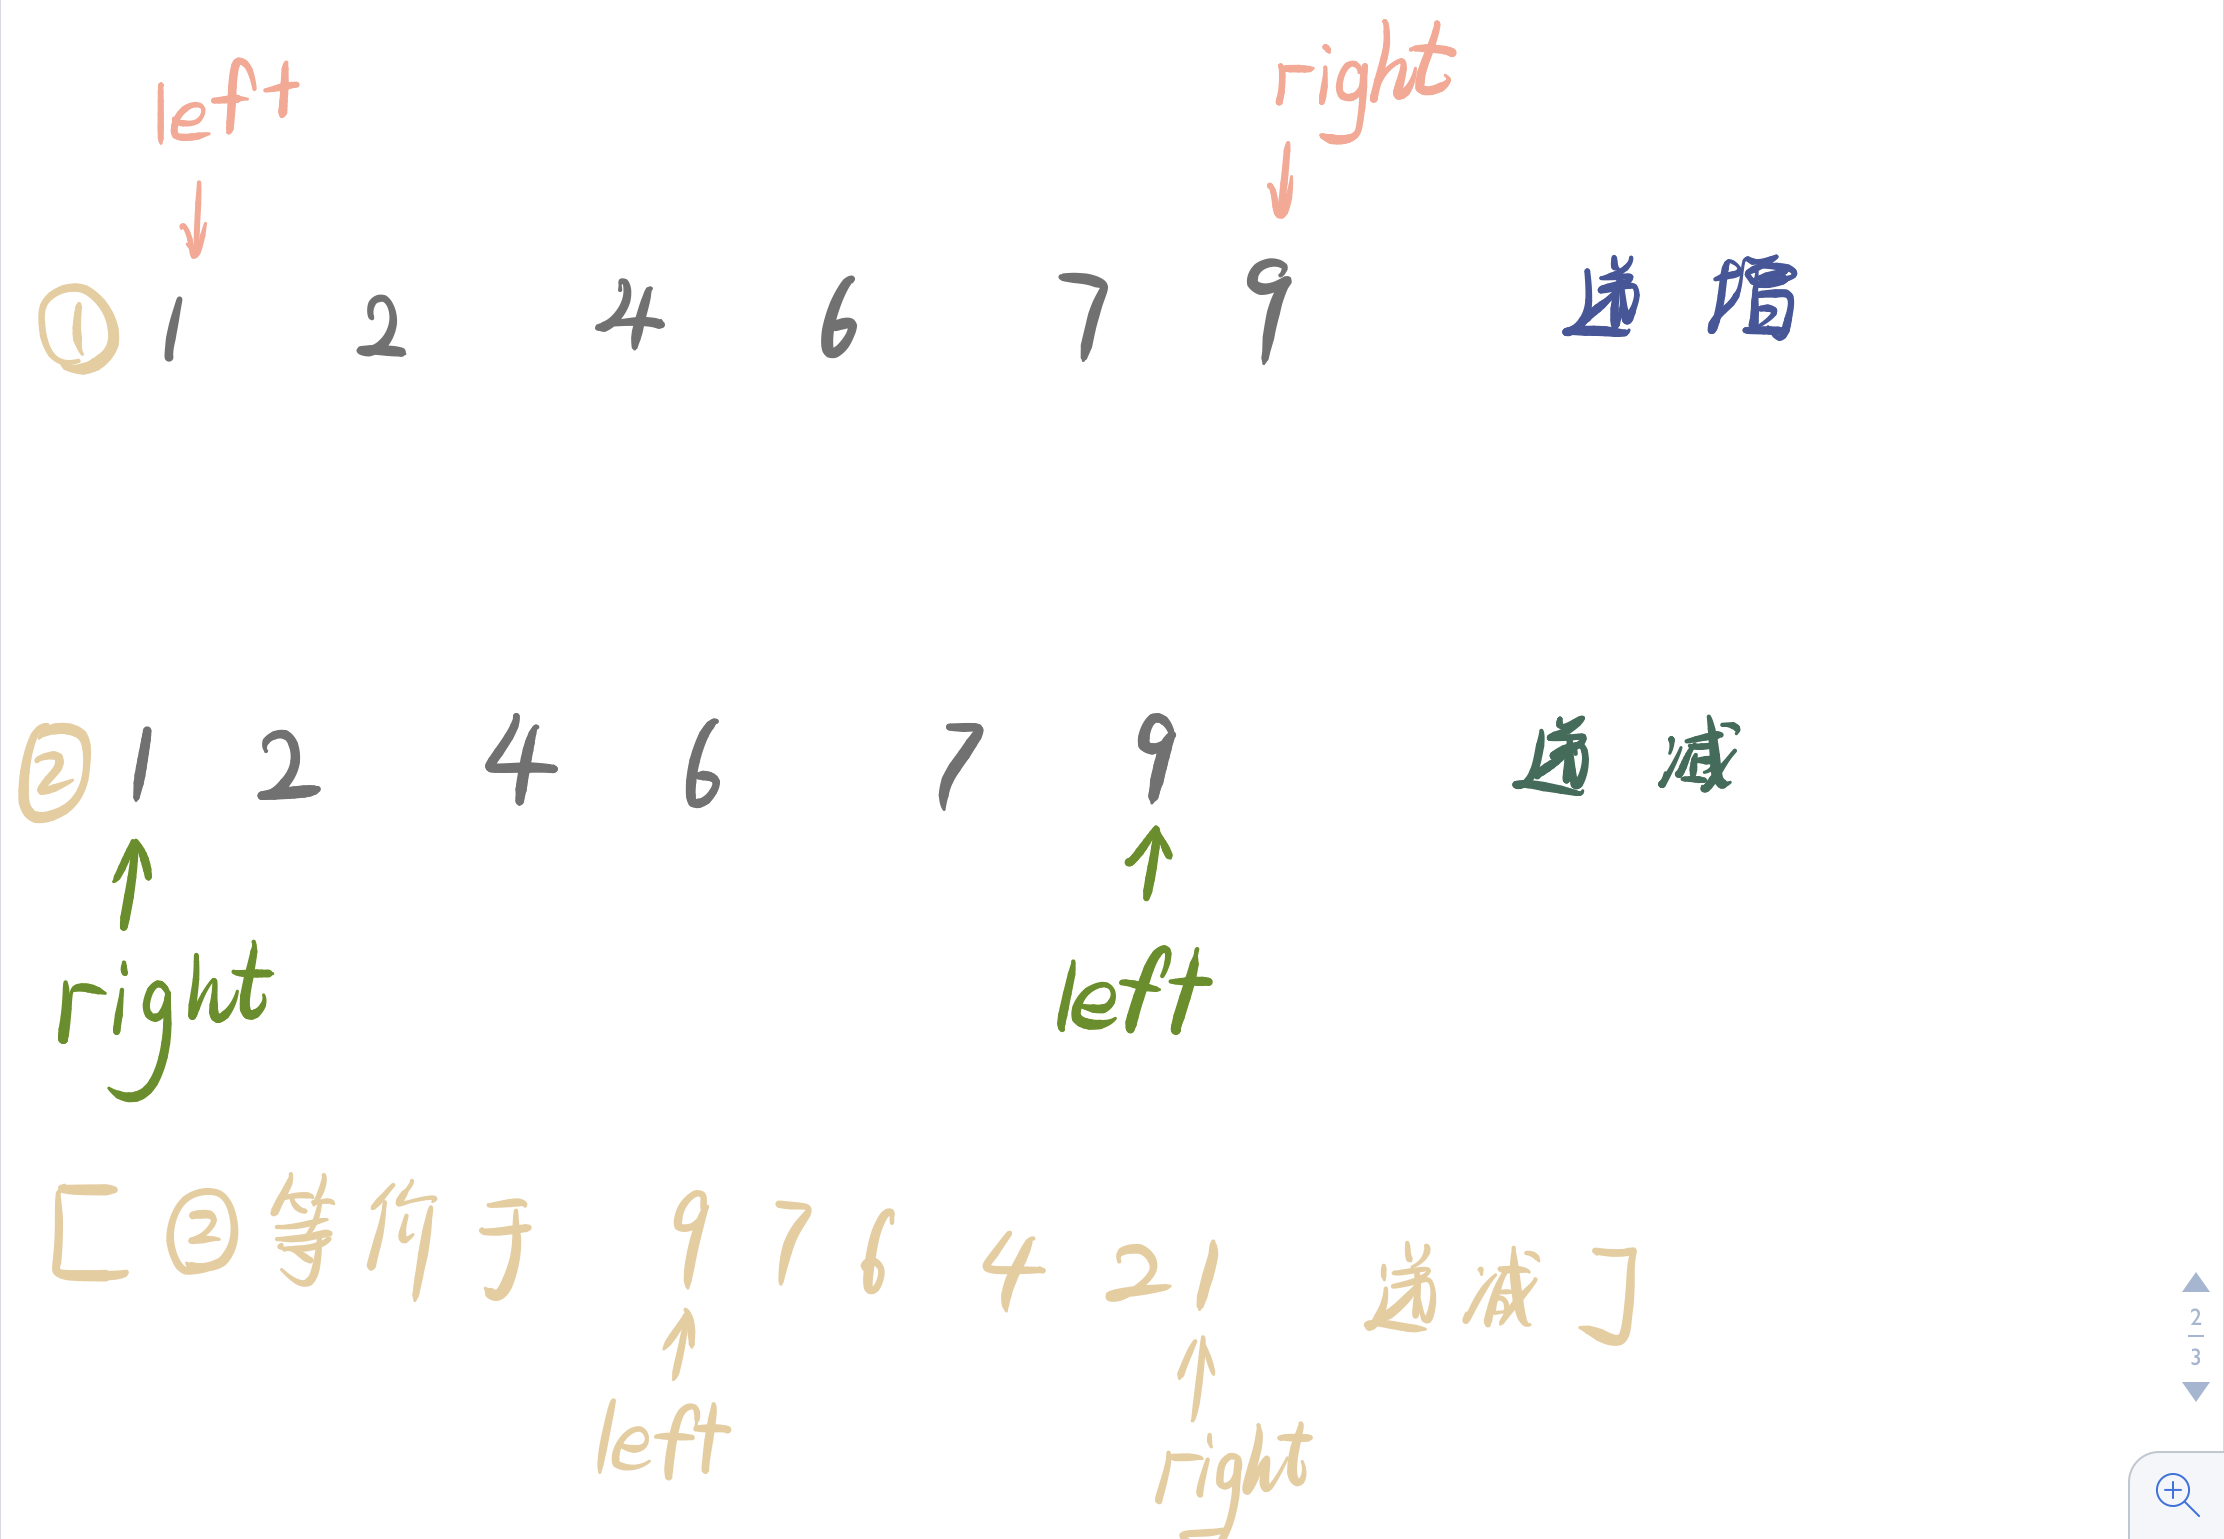 left right
① 1 2 4 6 7 9 递增
② 1 2 4 6 7 9 递减
right left
[ ② 等价于 9 7 6 4 2 1 递减 ]
left
right
2
3